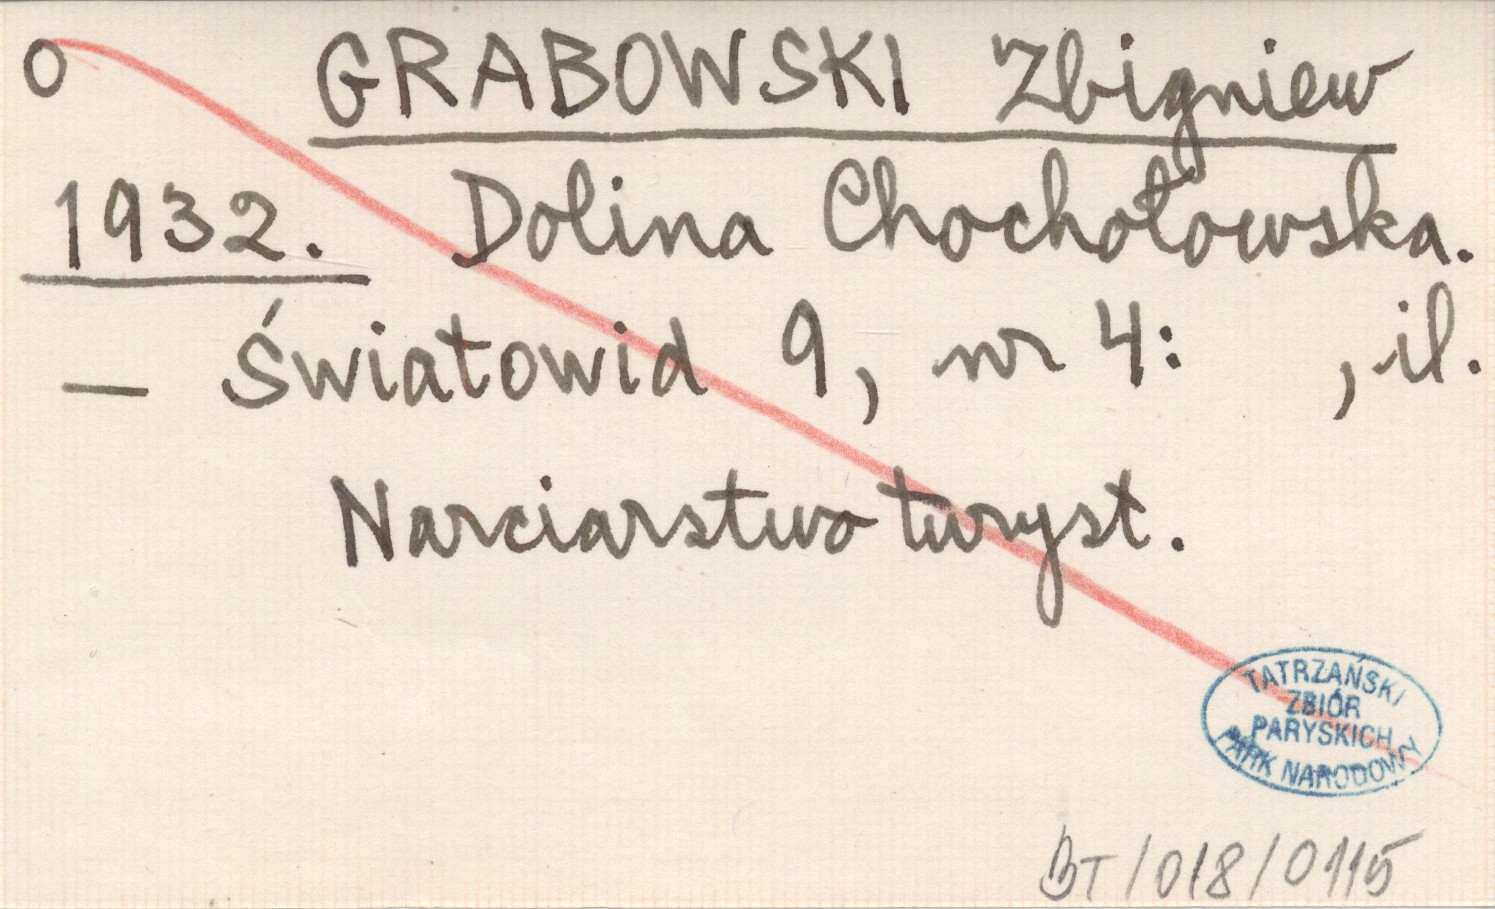 o GRABOWSKI Zbigniew
1932. Dolina Chochołowska.
— Światowid 9, nr 4: , il.
Narciarstwo turyst.
TATRZAŃSKI
ZBIÓR
PARYSKICH
PARK NARODOWY
BT/018/0115